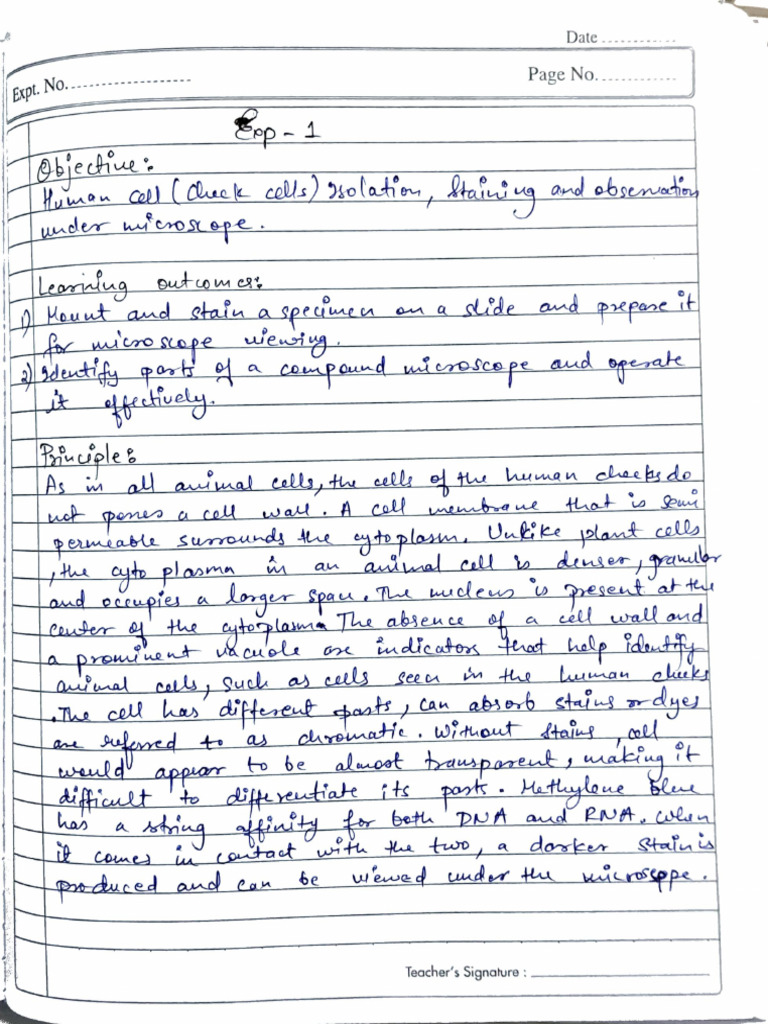 Date ............
Expt. No. ....................
Page No. ............
Exp - 1
Objective:
Human cell (Cheek cells) Isolation, Staining and observation
under microscope.
Learning outcomes:
1) Mount and stain a specimen on a slide and prepare it
for microscope viewing.
2) Identify parts of a compound microscope and operate
it effectively.
Principle:
As in all animal cells, the cells of the human cheeks do
not posses a cell wall. A cell membrane that is semi
permeable surrounds the cytoplasm. Unlike plant cells
, the cyto plasma in an animal cell is denser, granular
and occupies a larger space. The nucleus is present at the
center of the cytoplasm. The absence of a cell wall and
a prominent vacuole are indicators that help identify
animal cells, such as cells seen in the human cheeks
. The cell has different parts, can absorb stains or dyes
are referred to as chromatic. Without stains, cell
would appear to be almost transparent, making it
difficult to differentiate its parts. Methylene blue
has a string affinity for both DNA and RNA. When
it comes in contact with the two, a darker stain is
produced and can be viewed under the microscope.
Teacher's Signature : ____________